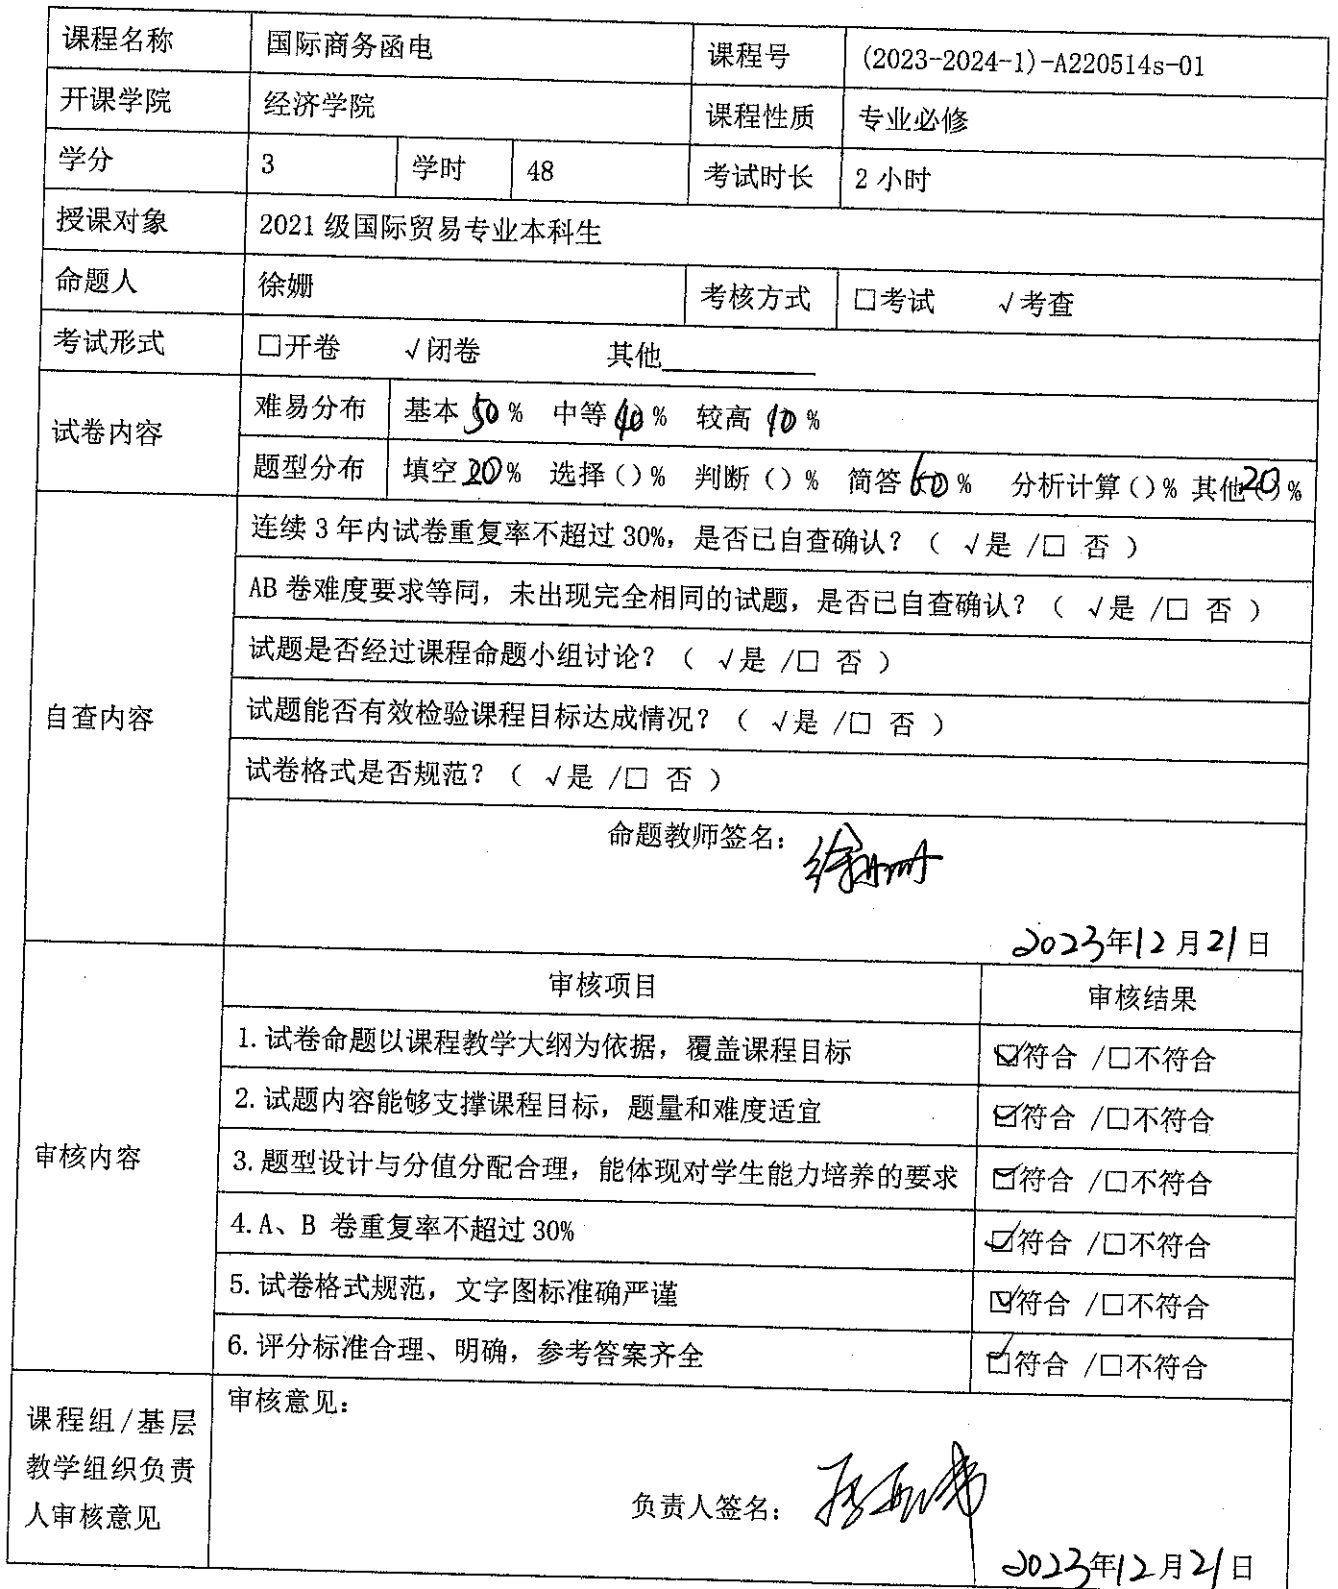 课程名称 国际商务函电 课程号 (2023-2024-1)-A220514s-01
开课学院 经济学院 课程性质 专业必修
学分 3 学时 48 考试时长 2 小时
授课对象 2021 级国际贸易专业本科生
命题人 徐姗 考核方式 □考试 √考查
考试形式 □开卷 √闭卷 其他
试卷内容
难易分布 基本 50 % 中等 40 % 较高 10 %
题型分布 填空 20 % 选择()% 判断()% 简答 60 % 分析计算()% 其他 20 %
自查内容
连续 3 年内试卷重复率不超过 30%，是否已自查确认？（ √是 /□ 否 ）
AB 卷难度要求等同，未出现完全相同的试题，是否已自查确认？（ √是 /□ 否 ）
试题是否经过课程命题小组讨论？（ √是 /□ 否 ）
试题能否有效检验课程目标达成情况？（ √是 /□ 否 ）
试卷格式是否规范？（ √是 /□ 否 ）
命题教师签名：徐姗
2023年12月21日
审核内容
审核项目 审核结果
1.试卷命题以课程教学大纲为依据，覆盖课程目标 ☑符合 /□不符合
2.试题内容能够支撑课程目标，题量和难度适宜 ☑符合 /□不符合
3.题型设计与分值分配合理，能体现对学生能力培养的要求 ☑符合 /□不符合
4.A、B 卷重复率不超过 30% ☑符合 /□不符合
5.试卷格式规范，文字图标准确严谨 ☑符合 /□不符合
6.评分标准合理、明确，参考答案齐全 ☑符合 /□不符合
课程组/基层
教学组织负责
人审核意见
审核意见：
负责人签名：
2023年12月21日